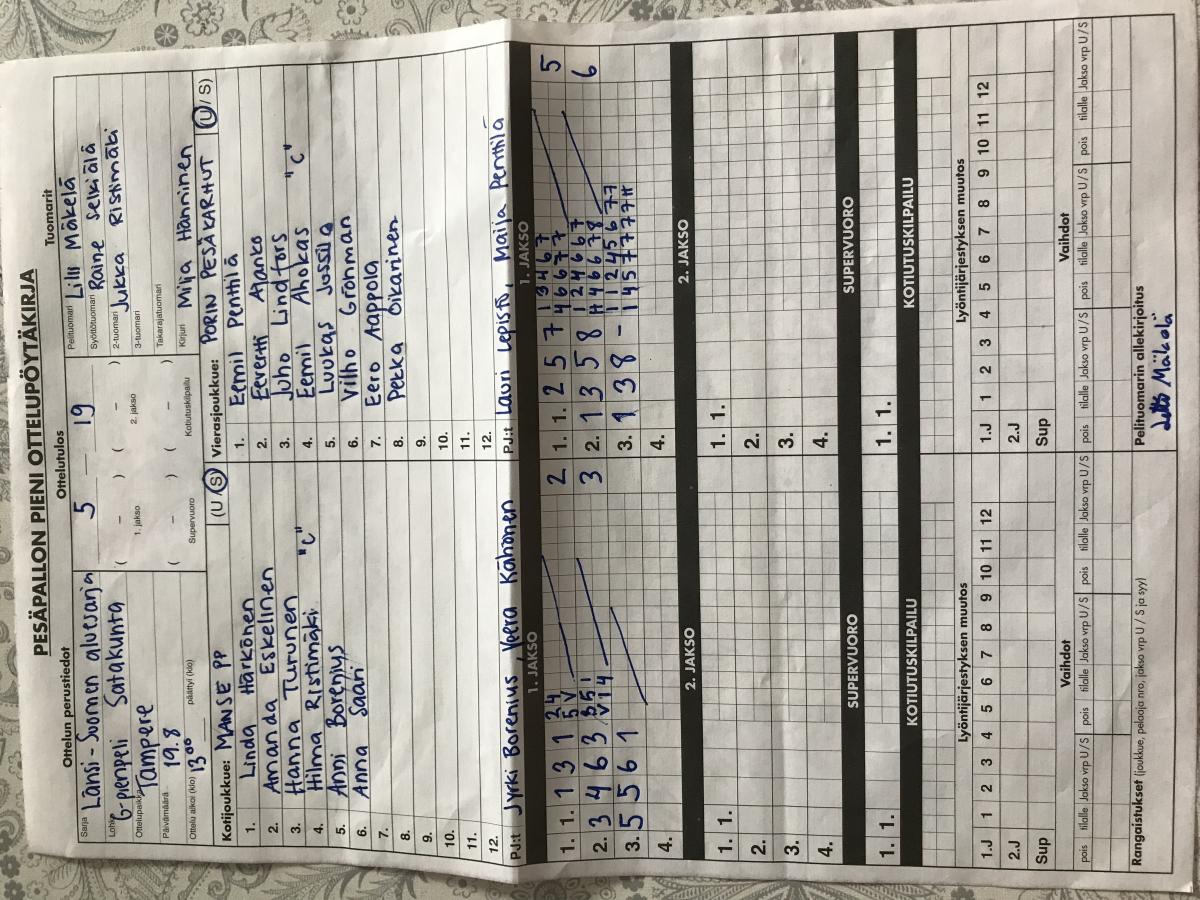 PESÄPALLON PIENI OTTELUPÖYTÄKIRJA
Ottelun perustiedot
Sarja Länsi-Suomen aluesarja
Lohko G-pienpeli Satakunta
Ottelupaikka Tampere
Päivämäärä 19.8
Ottelu alkoi (klo) 13⁰⁰ päättyi (klo)
Ottelutulos
5 – 19
( – ) ( – )
1. jakso 2. jakso
( – ) ( – )
Supervuoro Kotiutuskilpailu
Tuomarit
Pelituomari Lilli Mäkelä
Syöttötuomari Raine Selkiälä
2-tuomari Jukka Ristimäki
3-tuomari
Takarajatuomari
Kirjuri Milja Hänninen
Kotijoukkue: MANSE PP (U/S)
1. Linda Härkönen
2. Amanda Eskelinen
3. Hanna Turunen
4. Hilma Ristimäki "C"
5. Anni Borenius
6. Anna Saari
7.
8.
9.
10.
11.
12.
PJ:t Jyrki Borenius, Veera Kähönen
Vierasjoukkue: PORIN PESÄKARHUT (U/S)
1. Eemil Penttilä
2. Eevertti Ajanko
3. Juho Lindfors
4. Eemil Ahokas "C"
5. Luukas Jussila
6. Vilho Grönman
7. Eero Aappola
8. Pekka Oikarinen
9.
10.
11.
12.
PJ:t Lauri Lepistö, Maija Penttilä
1. JAKSO 1. JAKSO
1. 1. 1 3 1 5 2
2. 3 4 6 3 3
3. 5 5 6 1
4.
1. 1. 2 5 7 5
2. 1 3 5 8 6
3. 1 3 8 -
4.
2. JAKSO 2. JAKSO
1. 1. 1. 1.
2. 2.
3. 3.
4. 4.
SUPERVUORO SUPERVUORO
1. 1. 1. 1.
KOTIUTUSKILPAILU KOTIUTUSKILPAILU
Lyöntijärjestyksen muutos Lyöntijärjestyksen muutos
1.J 1 2 3 4 5 6 7 8 9 10 11 12 1.J 1 2 3 4 5 6 7 8 9 10 11 12
2.J 2.J
Sup Sup
Vaihdot Vaihdot
pois tilalle Jakso vrp U/S pois tilalle Jakso vrp U/S pois tilalle Jakso vrp U/S pois tilalle Jakso vrp U/S pois tilalle Jakso vrp U/S pois tilalle Jakso vrp U/S
Rangaistukset (joukkue, pelaaja nro, jakso vrp U / S ja syy) Pelituomarin allekirjoitus